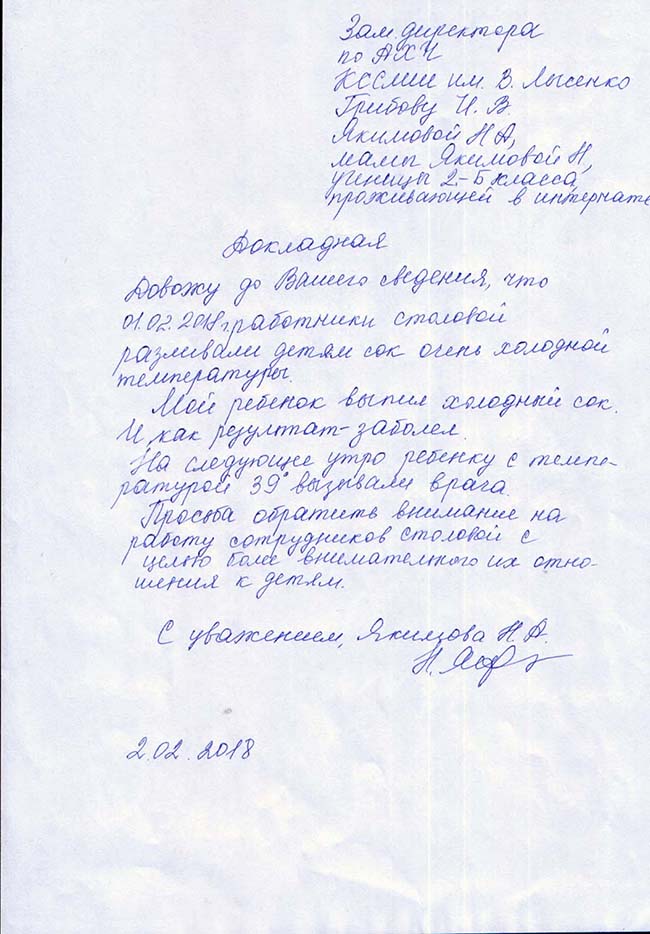 Зам. директора
по АХЧ
КССМШ им. В. Лысенко
Грибову И. В.
Якимовой Н А,
мамы Якимовой Н,
ученицы 2-Б класса,
проживающей в интернате
Докладная
Довожу до Вашего сведения, что
01.02.2018 г. работники столовой
разливали детям сок очень холодной
температуры.
Мой ребенок выпил холодный сок.
И как результат - заболел.
На следующее утро ребенку с темпе-
ратурой 39° вызывали врача.
Просьба обратить внимание на
работу сотрудников столовой с
целью более внимательного их отно-
шения к детям.
С уважением, Якимова Н А.
2.02.2018